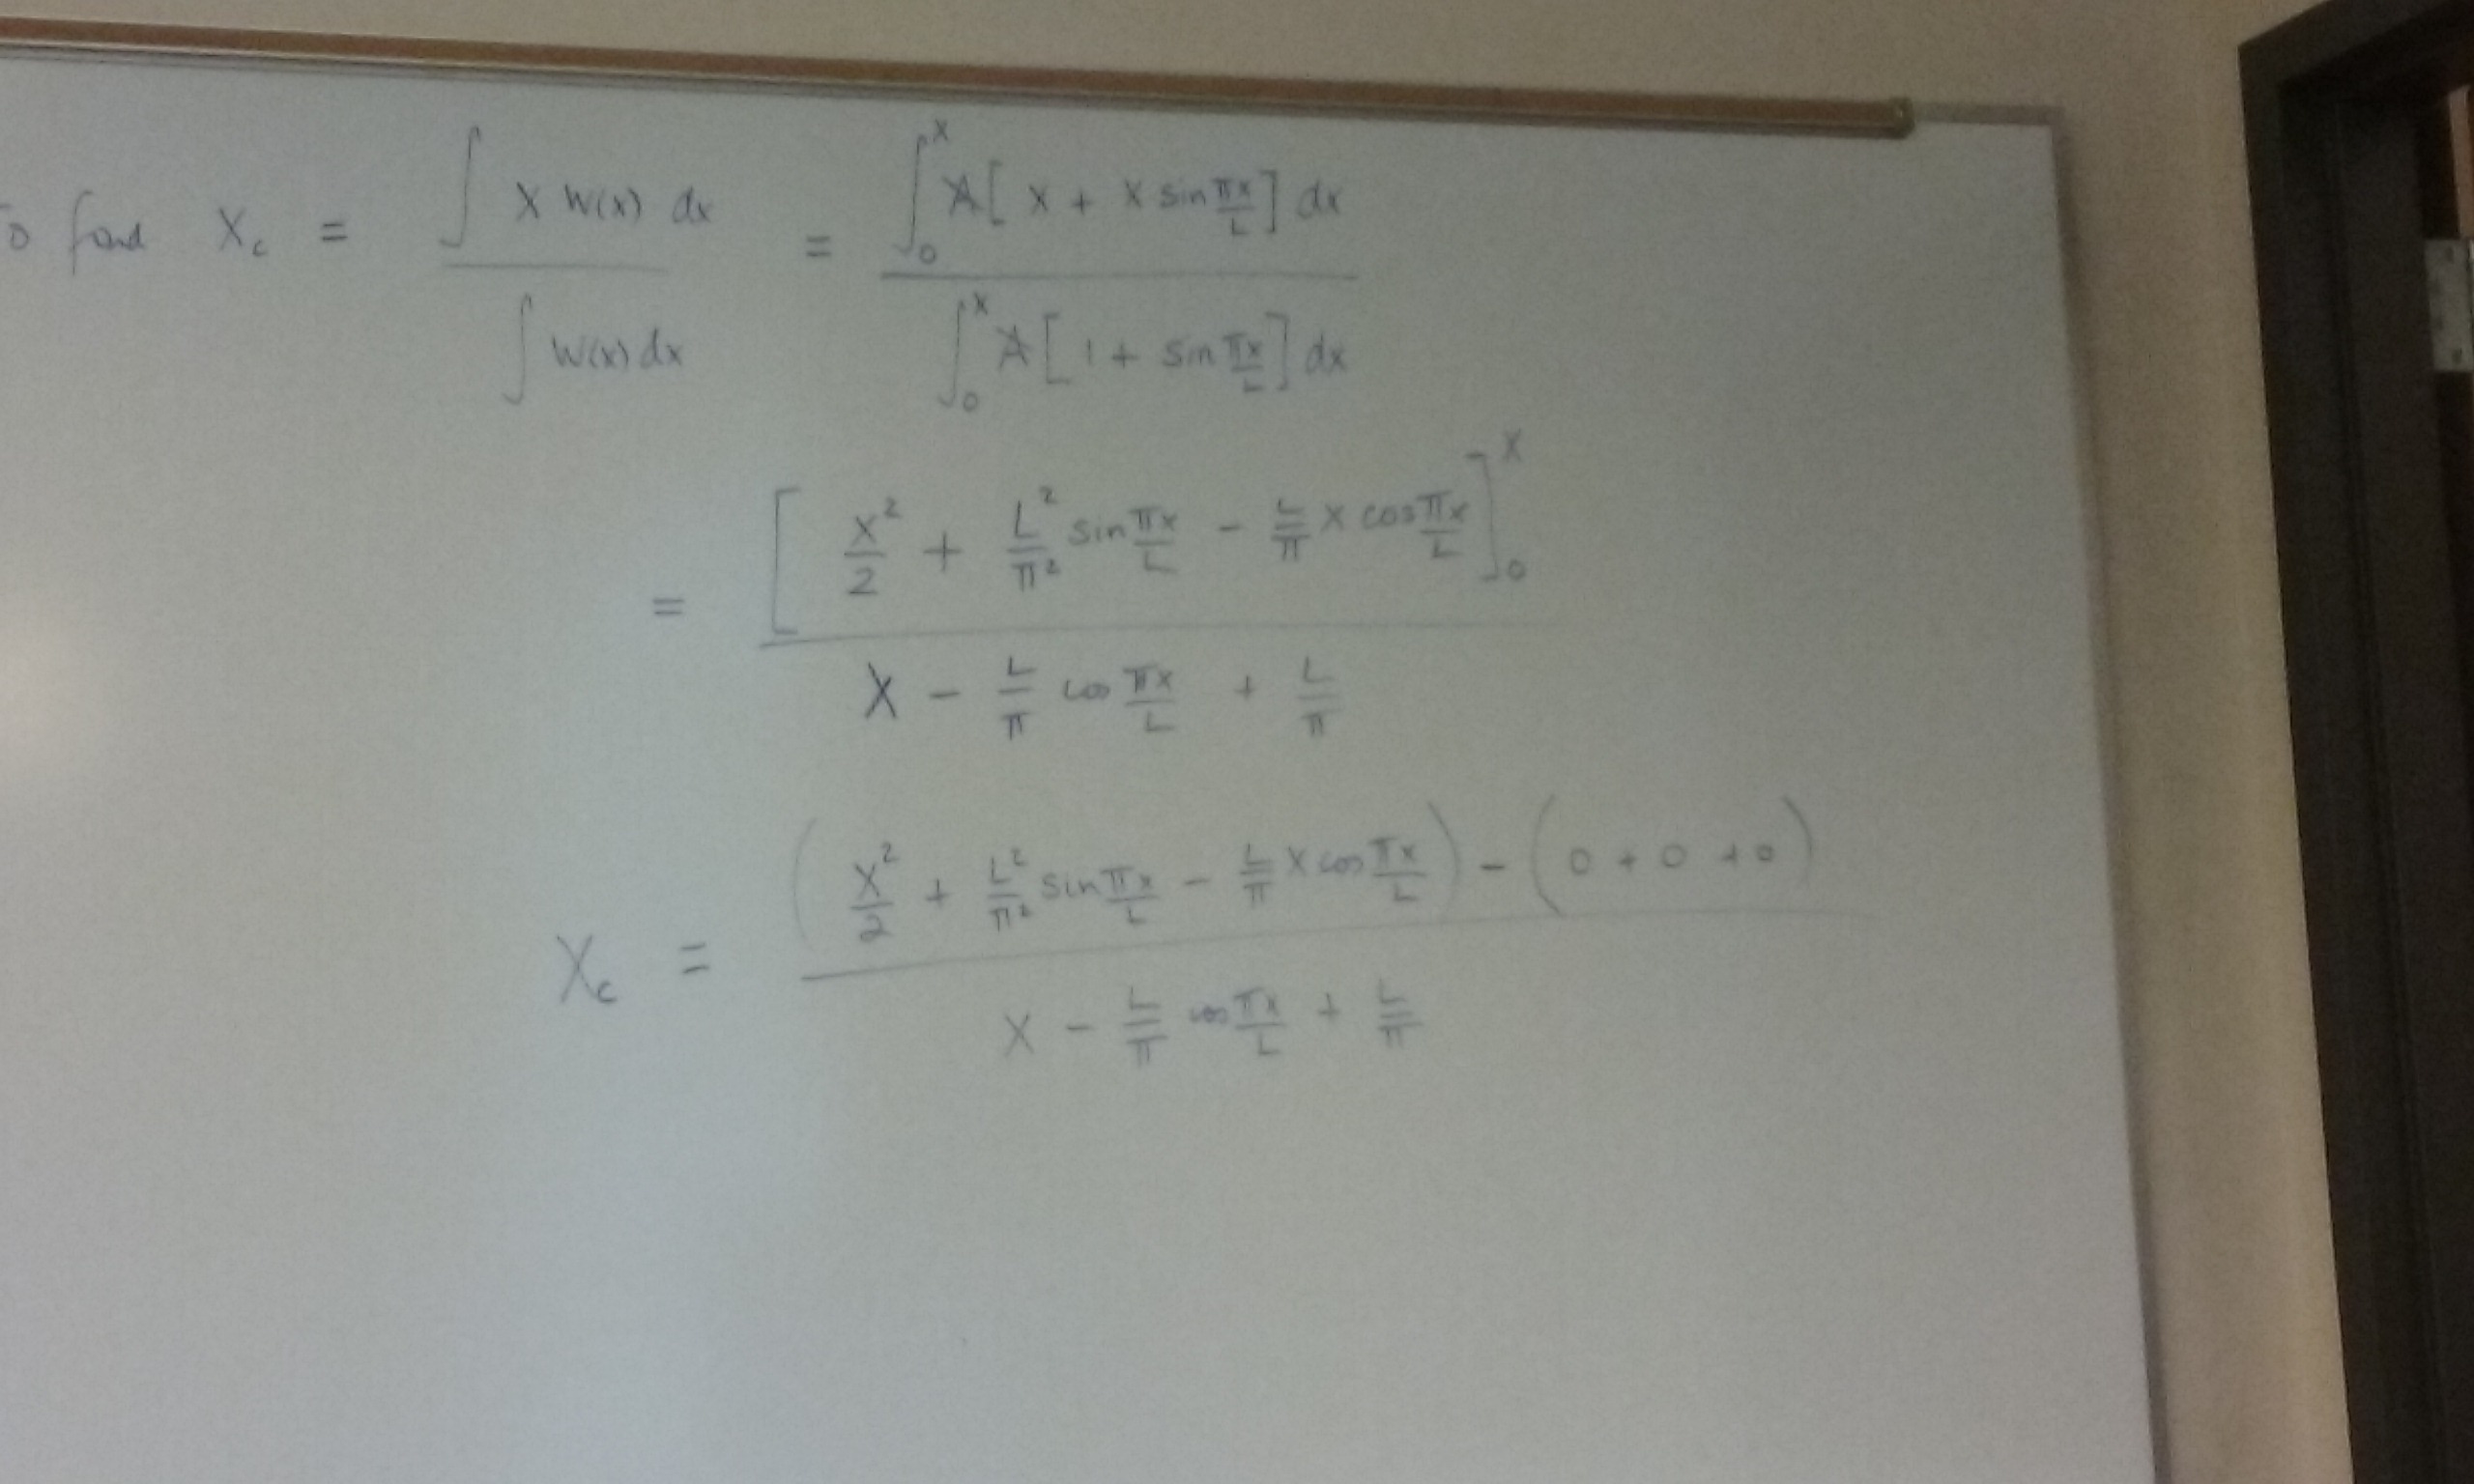 To find X_c = ∫ x w(x) dx / ∫ w(x) dx = ∫_0^x A[ x + x sin πx/L ] dx / ∫_0^x A[ 1 + sin πx/L ] dx
= [ x²/2 + L²/π² sin πx/L − L/π x cos πx/L ]_0^x / x − L/π cos πx/L + L/π
X_c = ( x²/2 + L²/π² sin πx/L − L/π x cos πx/L ) − ( 0 + 0 + 0 ) / x − L/π cos πx/L + L/π